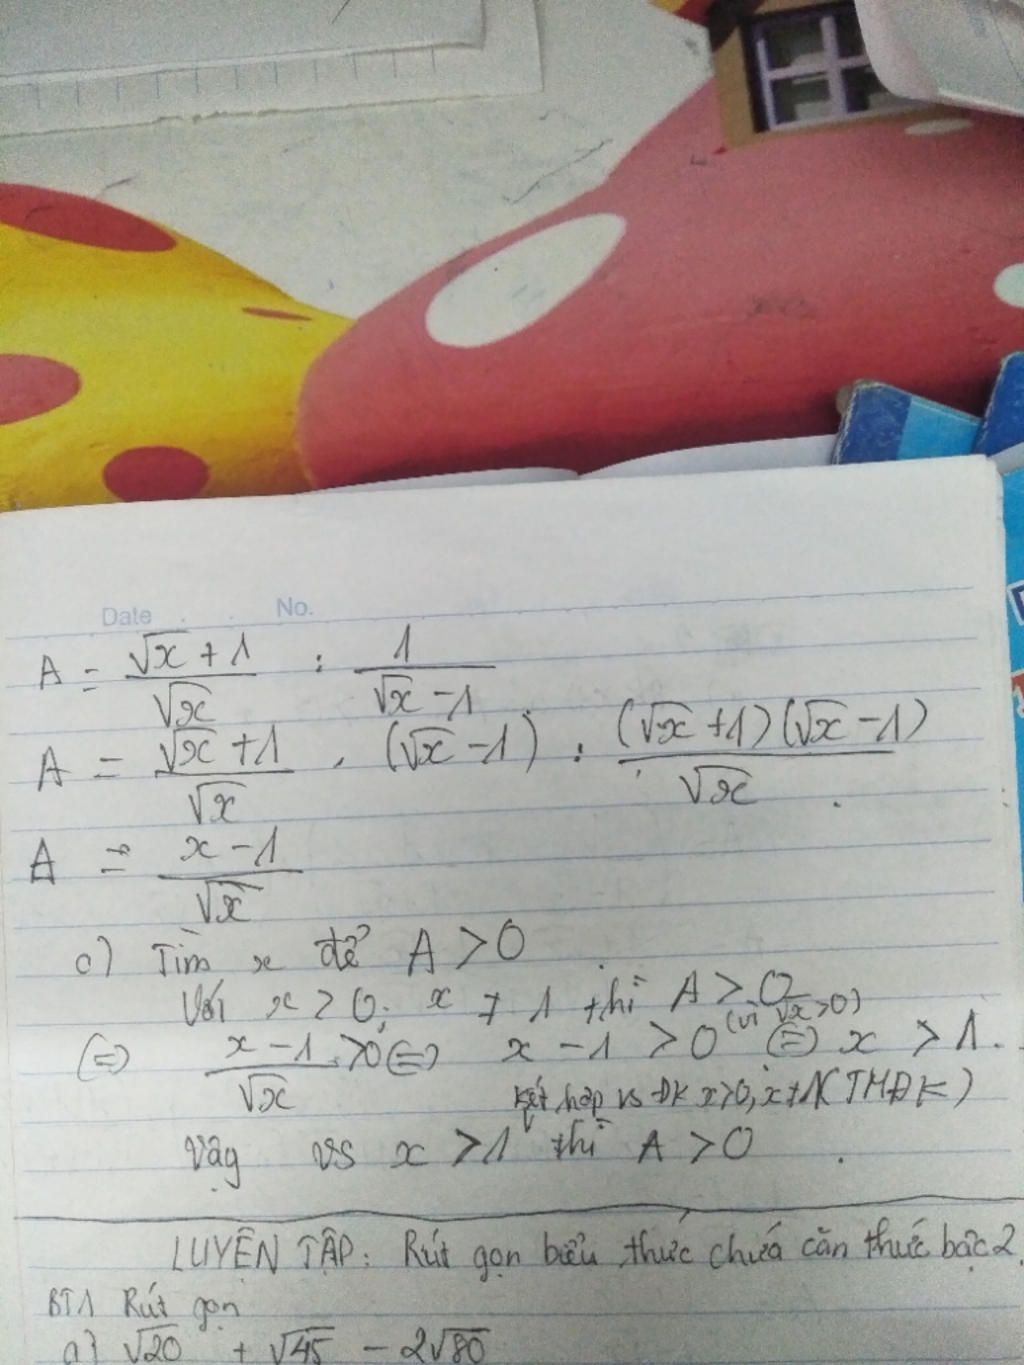 Date . . No.
A = \frac{\sqrt{x}+1}{\sqrt{x}} : \frac{1}{\sqrt{x}-1}
A = \frac{\sqrt{x}+1}{\sqrt{x}} . (\sqrt{x}-1) : \frac{(\sqrt{x}+1)(\sqrt{x}-1)}{\sqrt{x}}
A = \frac{x-1}{\sqrt{x}}
c) Tìm x để A > 0
Với x > 0; x ≠ 1 thì A > 0
(=) \frac{x-1}{\sqrt{x}} > 0 (=) x - 1 > 0 (vì \sqrt{x} > 0) (=) x > 1.
Kết hợp vs ĐK x>0, x≠1 (TMĐK)
Vậy vs x > 1 thì A > 0
LUYỆN TẬP: Rút gọn biểu thức chứa căn thức bậc 2
BT1 Rút gọn
a) \sqrt{20} + \sqrt{45} - 2\sqrt{80}